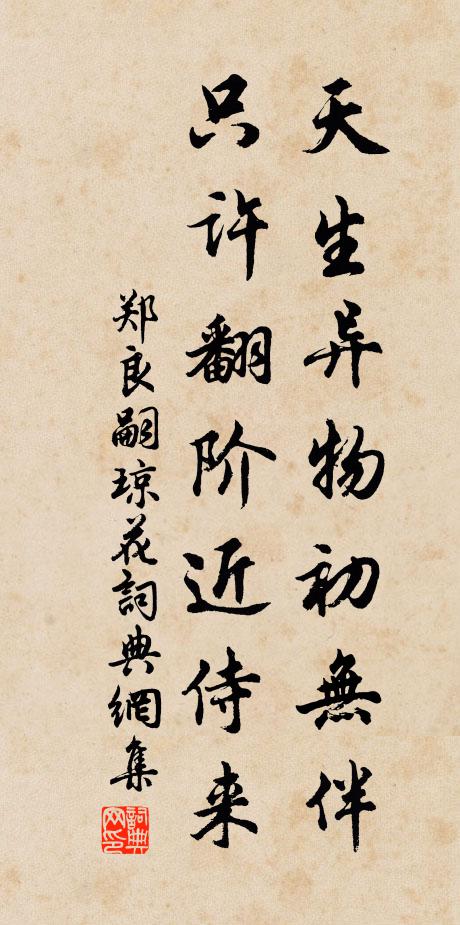 天生异物初無伴
只许翻阶近侍来
郑良嗣琼花詞典網集
詞典网印